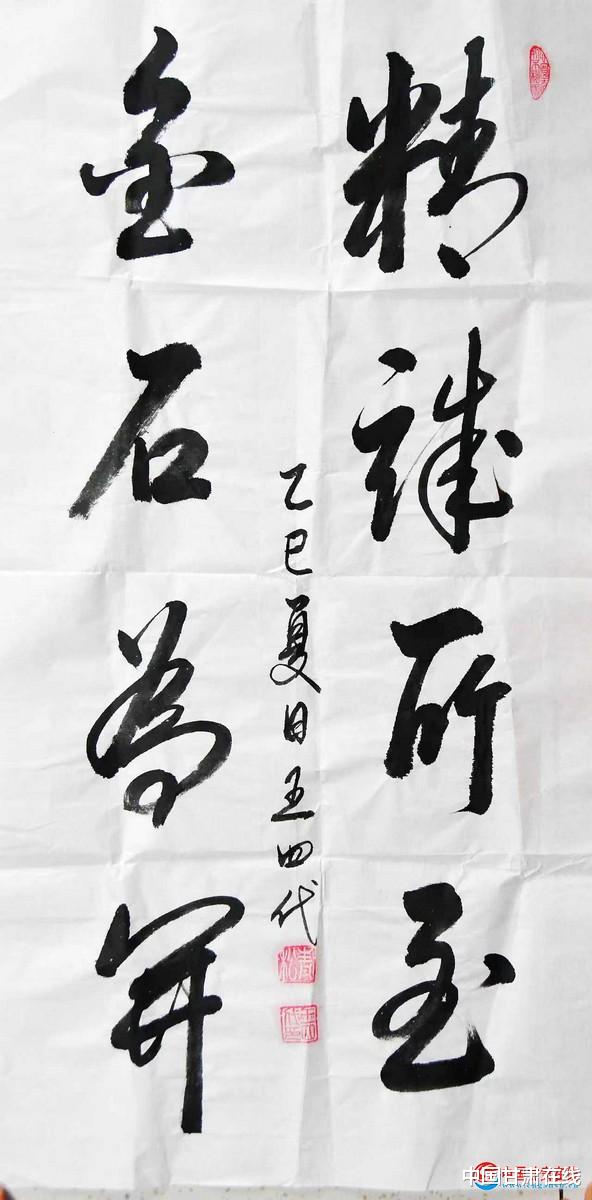 精誠所至
金石為開
乙巳夏日王四代
中国甘肃在线